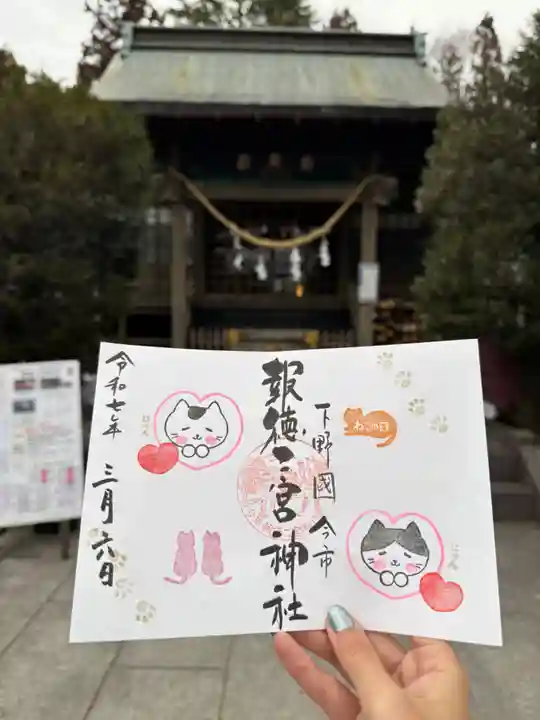 下野國今市
報徳二宮神社
令和七年 三月六日
ねこの日